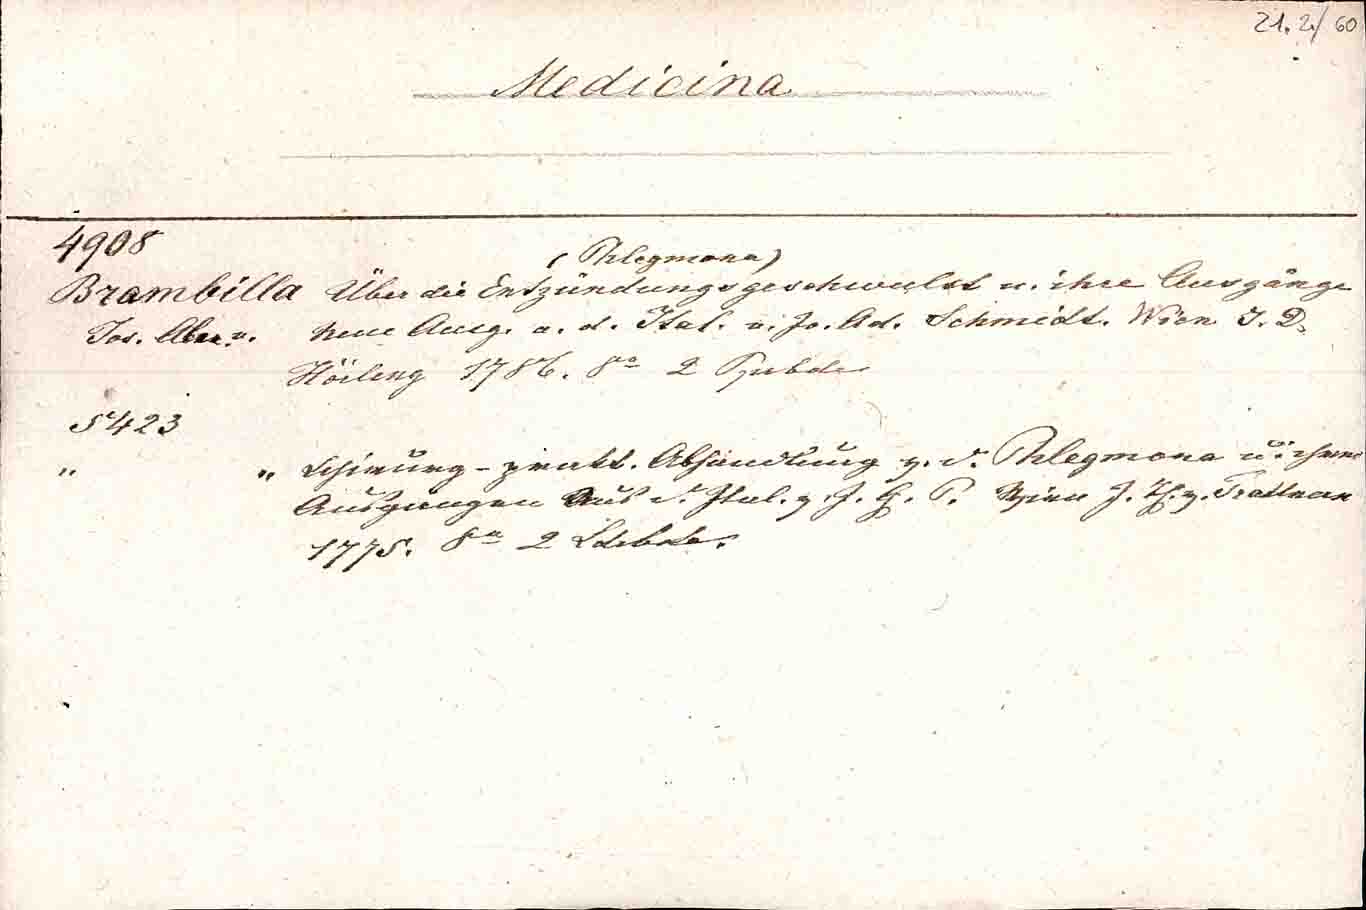 21.2./60
Medicina
4908
(Phlegmona)
Brambilla Über die Entzündungsgeschwulst u. ihre Ausgänge
Jos. Alex. v. neue Ausg. a. d. Ital. v. Jo. Ad. Schmidt. Wien J. D.
Hörling 1786. 8o 2 Ppbde
5423
" " Chirurg-prakt. Abhandlung v. d. Phlegmona u. ihren
Ausgängen Aus d. Ital. v. J. H. P. Wien J. Th. v. Trattnern
1775. 8o 2 Ldrbde.